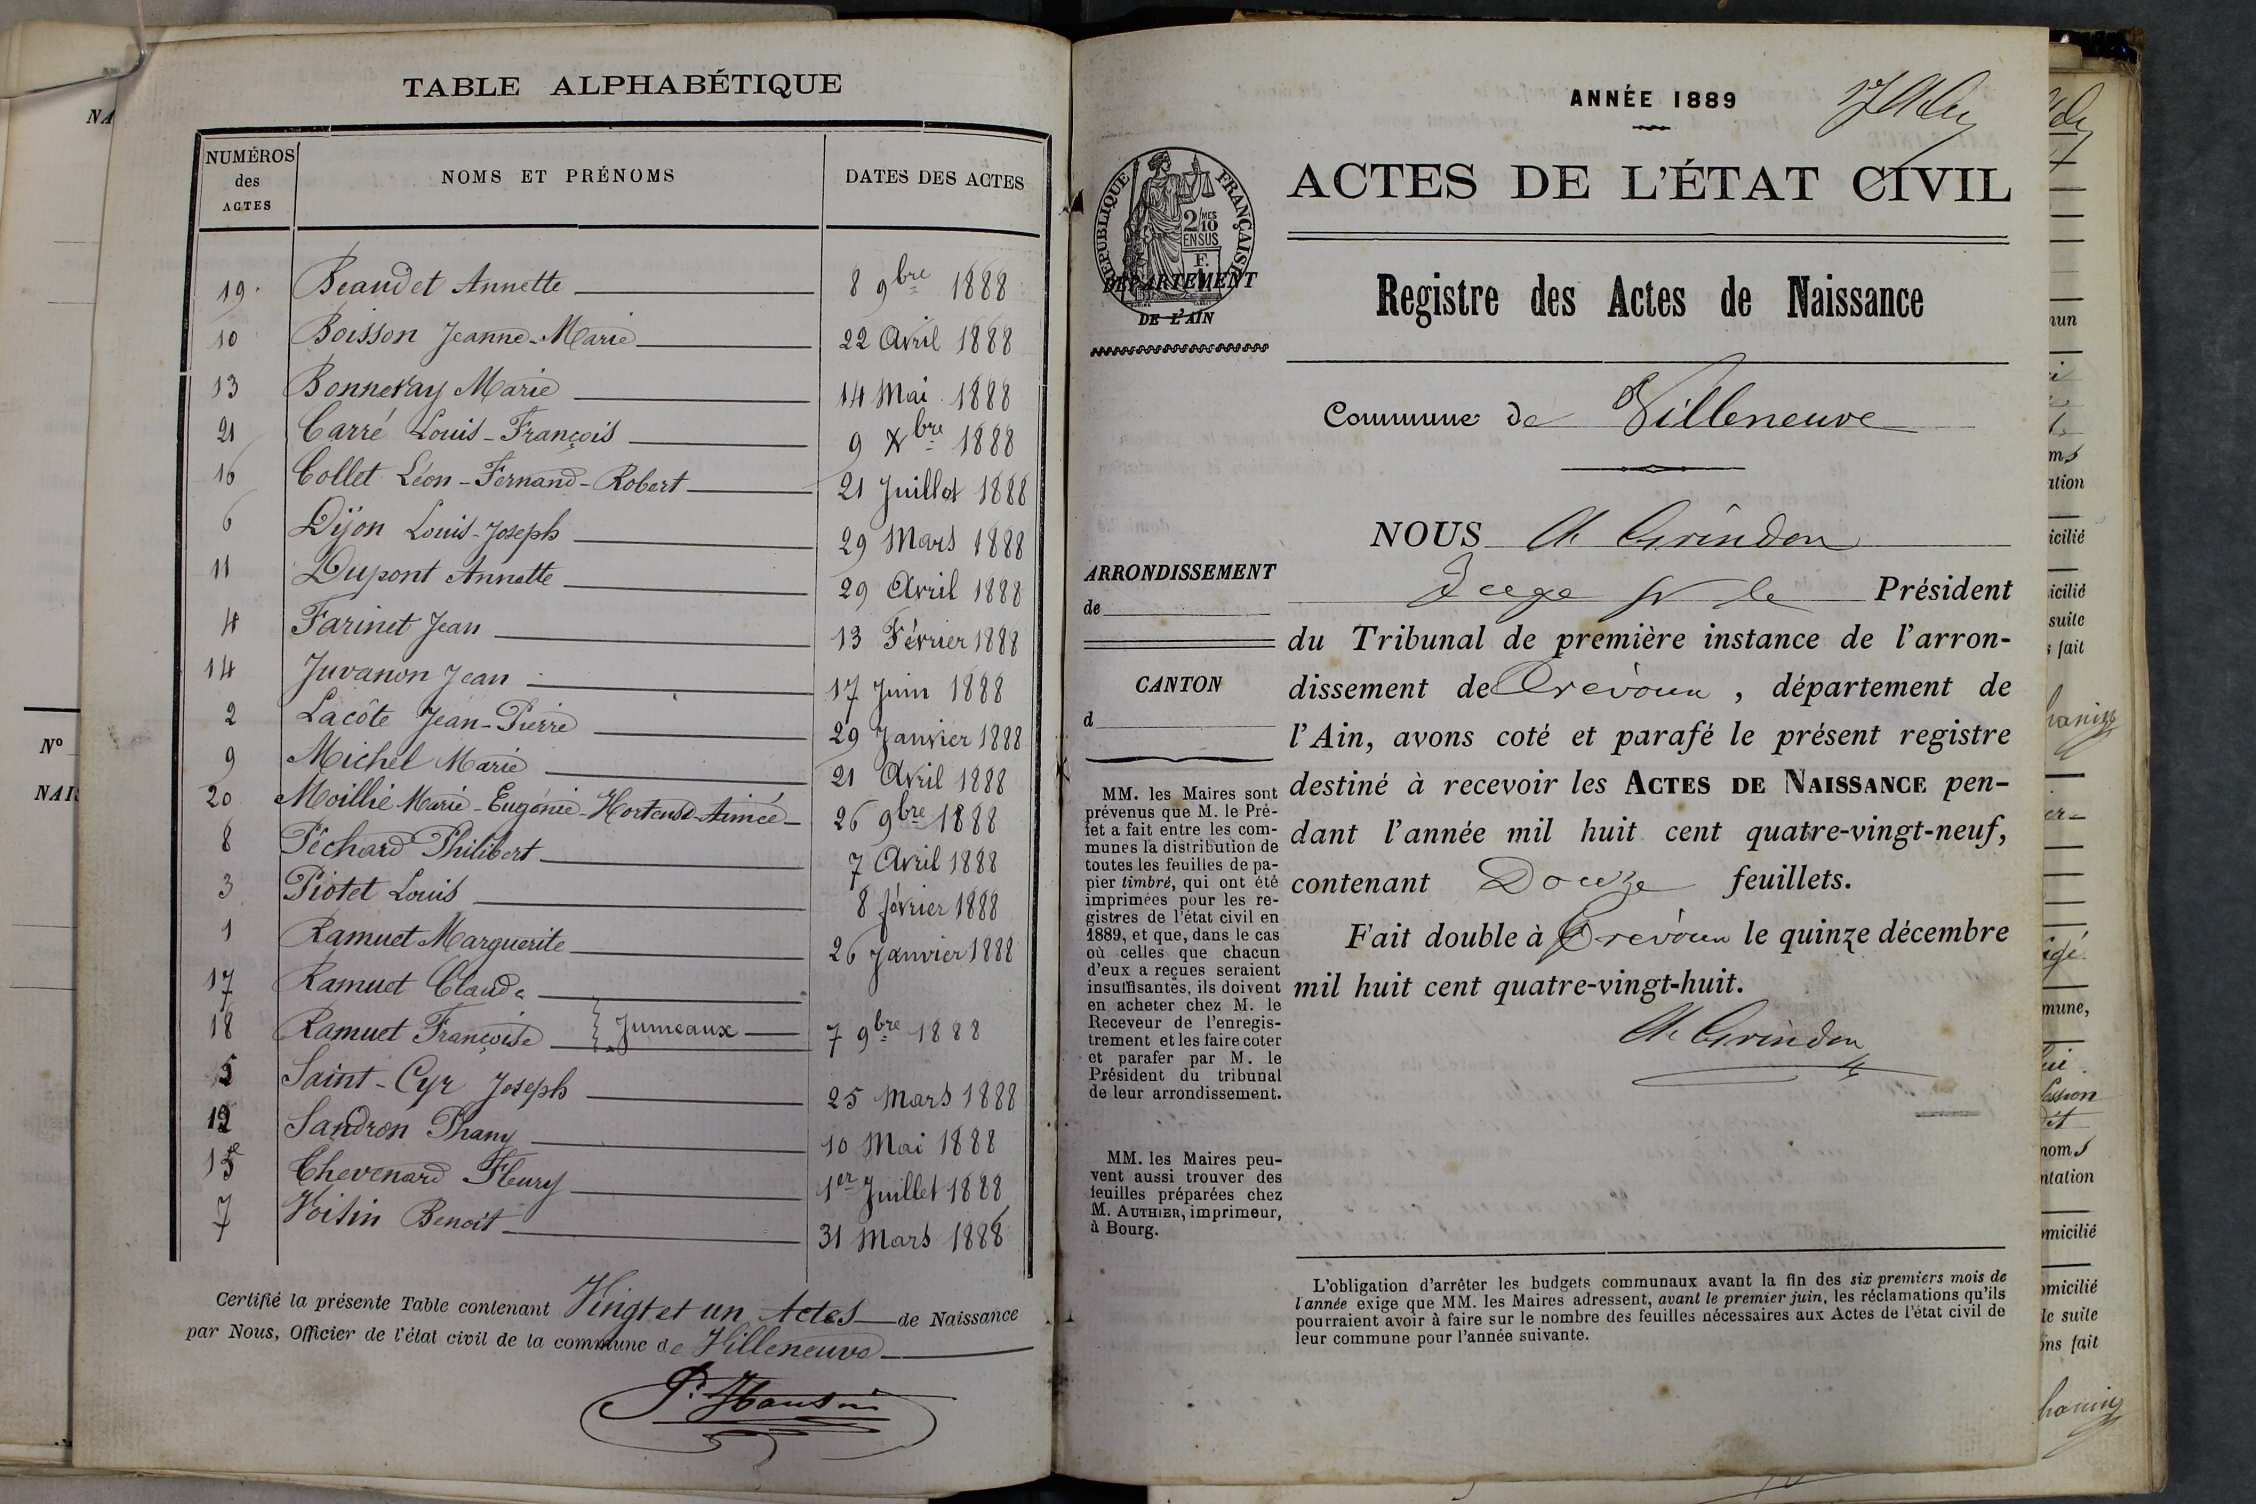 TABLE ALPHABÉTIQUE
NUMÉROS des ACTES
NOMS ET PRÉNOMS
DATES DES ACTES
19. Beaudet Annette 8 9bre 1888
10 Boisson Jeanne-Marie 22 Avril 1888
13 Bonneray Marie 14 Mai 1888
21 Carré Louis-François 9 Xbre 1888
16 Collet Léon-Fernand-Robert 21 Juillet 1888
6 Dijon Louis-Joseph 29 Mars 1888
11 Dupont Annette 29 Avril 1888
4 Farinet Jean 13 Février 1888
14 Juvanon Jean 17 Juin 1888
2 Lacôte Jean-Pierre 29 Janvier 1888
9 Michel Marie 21 Avril 1888
20 Moillié Marie-Eugénie-Hortense-Aimée 26 9bre 1888
8 Péchard Philibert 7 Avril 1888
3 Piotet Louis 8 février 1888
1 Ramuet Marguerite 26 Janvier 1888
17 Ramuet Claude
18 Ramuet Françoise } Jumeaux 7 9bre 1888
5 Saint-Cyr Joseph 25 Mars 1888
12 Sandron Phany 10 Mai 1888
15 Chevenard Fleury 1er Juillet 1888
7 Voisin Benoît 31 Mars 1888
Certifié la présente Table contenant Vingt et un Actes de Naissance
par Nous, Officier de l'état civil de la commune de Villeneuve
ANNÉE 1889
ACTES DE L'ÉTAT CIVIL
RÉPUBLIQUE FRANÇAISE
2/10 MES
EN SUS
F.
DÉPARTEMENT
DE L'AIN
Registre des Actes de Naissance
Commune de Villeneuve
NOUS Ch Grindon
Juge pr le Président
du Tribunal de première instance de l'arron-
dissement de Trévoux, département de
l'Ain, avons coté et parafé le présent registre
destiné à recevoir les ACTES DE NAISSANCE pen-
dant l'année mil huit cent quatre-vingt-neuf,
contenant Douze feuillets.
Fait double à Trévoux le quinze décembre
mil huit cent quatre-vingt-huit.
Ch Grindon
ARRONDISSEMENT
de
CANTON
d
MM. les Maires sont
prévenus que M. le Pré-
fet a fait entre les com-
munes la distribution de
toutes les feuilles de pa-
pier timbré, qui ont été
imprimées pour les re-
gistres de l'état civil en
1889, et que, dans le cas
où celles que chacun
d'eux a reçues seraient
insuffisantes, ils doivent
en acheter chez M. le
Receveur de l'enregis-
trement et les faire coter
et parafer par M. le
Président du tribunal
de leur arrondissement.
MM. les Maires peu-
vent aussi trouver des
feuilles préparées chez
M. AUTHIER, imprimeur,
à Bourg.
L'obligation d'arrêter les budgets communaux avant la fin des six premiers mois de
l'année exige que MM. les Maires adressent, avant le premier juin, les réclamations qu'ils
pourraient avoir à faire sur le nombre des feuilles nécessaires aux Actes de l'état civil de
leur commune pour l'année suivante.